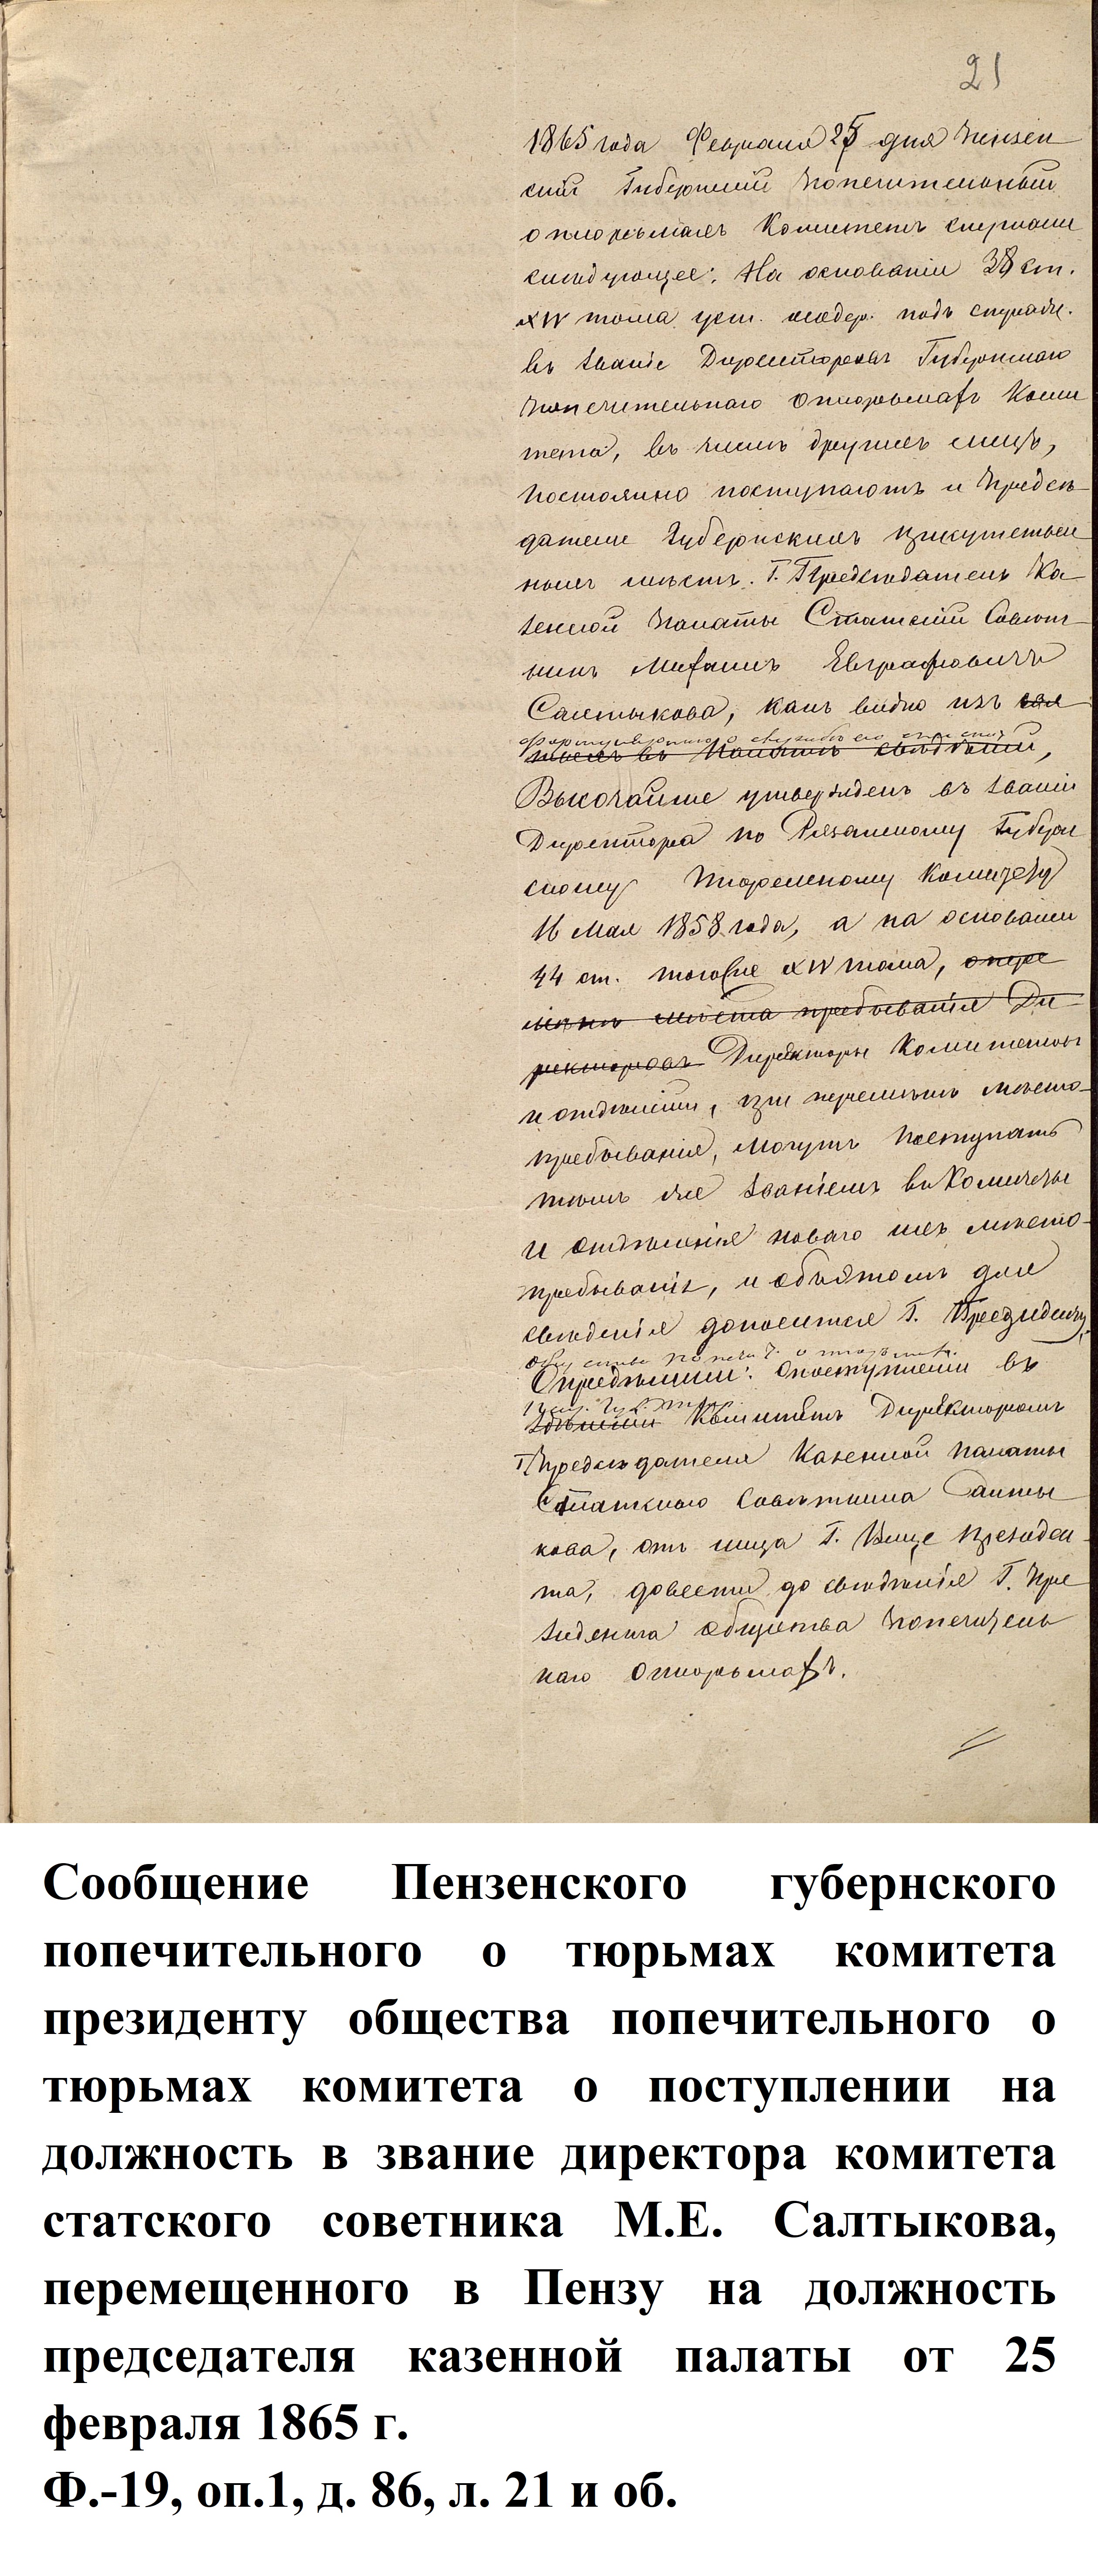 21
1865 года Февраля 25 дня Пензен
скій Губернскій попечительный
о тюрьмахъ Комитетъ слушали
слѣдующее: На основаніи 38 ст.
XIV тома уст. содер. подъ стражею
въ званіе Директоровъ Губернскаго
попечительнаго о тюрьмахъ Коми
тета, въ числѣ другихъ лицъ,
постоянно поступаютъ и Предсѣ
датели Губернскихъ присутствен
ныхъ мѣстъ. Г. Предсѣдатель Ка
зенной Палаты Статскій Совѣт
никъ Михаилъ Евграфовичъ
Салтыкова, какъ видно изъ
формулярнаго о службѣ его списка
въ Палатѣ свѣдѣній,
Высочайше утвержденъ въ званіи
Директора по Рязанскому Губерн
скому Тюремному Комитету
16 Мая 1858 года, а на основаніи
44 ст. того же XIV тома, опере
мѣнѣ мѣста пребыванія Ди
ректоровъ Директоры Комитетовъ
и отдѣленій, при перемѣнѣ мѣсто
пребыванія, могутъ поступать
тѣмъ же званіемъ въ Комитеты
и отдѣленія новаго ихъ мѣсто
пребыванія, и объ этомъ для
свѣденія доносится Г. Президенту
Общества попеч. о тюрьмах.
Опредѣлили: о поступленіи въ
здѣшній Комитетъ Директоромъ
Г. Предсѣдателя Казенной Палаты
Статскаго Совѣтника Салты
кова, отъ лица Г. Вице Президен
та, довести до свѣдѣнія Г. Пре
зидента общества попечитель
наго о тюрьмахъ.
Сообщение Пензенского губернского
попечительного о тюрьмах комитета
президенту общества попечительного о
тюрьмах комитета о поступлении на
должность в звание директора комитета
статского советника М.Е. Салтыкова,
перемещенного в Пензу на должность
председателя казенной палаты от 25
февраля 1865 г.
Ф.-19, оп.1, д. 86, л. 21 и об.